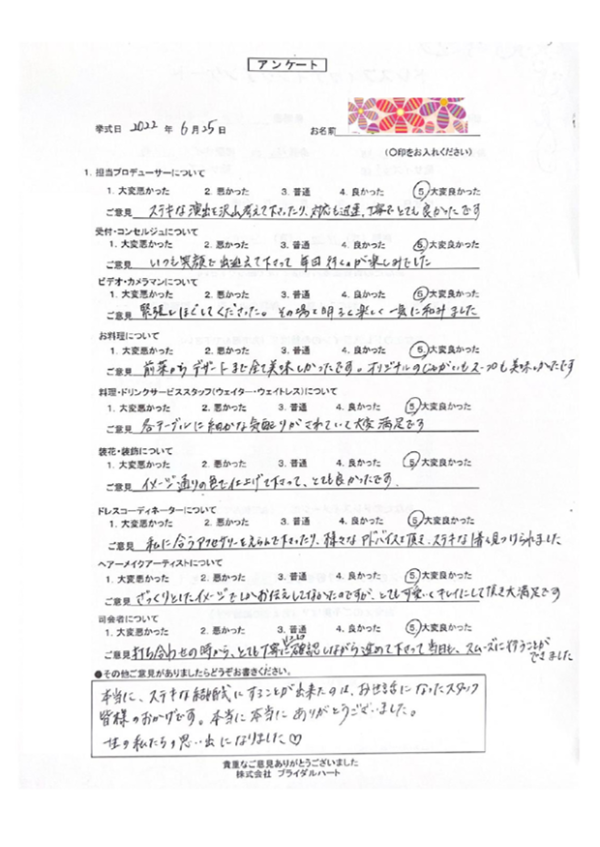 アンケート
挙式日 2022 年 6月25日 お名前
(○印をお入れください)
1. 担当プロデューサーについて
1. 大変悪かった 2. 悪かった 3. 普通 4. 良かった 5. 大変良かった
ご意見 ステキな演出を沢山考えて下さったり、対応も迅速、丁寧でとても良かったです
受付・コンセルジュについて
1. 大変悪かった 2. 悪かった 3. 普通 4. 良かった 5. 大変良かった
ご意見 いつも笑顔で出迎えて下さって 毎回行くのが楽しみでした
ビデオ・カメラマンについて
1. 大変悪かった 2. 悪かった 3. 普通 4. 良かった 5. 大変良かった
ご意見 緊張をほぐしてくださった。その場を明るく楽しく一気に和みました
お料理について
1. 大変悪かった 2. 悪かった 3. 普通 4. 良かった 5. 大変良かった
ご意見 前菜からデザートまで全て美味しかったです。オリジナルのじゃがいもスープも美味しかったです
料理・ドリンクサービススタッフ(ウェイター・ウェイトレス)について
1. 大変悪かった 2. 悪かった 3. 普通 4. 良かった 5. 大変良かった
ご意見 各テーブルに細かな気配りがされていて大変満足です
装花・装飾について
1. 大変悪かった 2. 悪かった 3. 普通 4. 良かった 5. 大変良かった
ご意見 イメージ通りの色で仕上げて下さって、とても良かったです。
ドレスコーディネーターについて
1. 大変悪かった 2. 悪かった 3. 普通 4. 良かった 5. 大変良かった
ご意見 私に合うアクセサリーをえらんで下さったり、様々なアドバイスを頂き、ステキな1着を見つけられました
ヘアーメイクアーティストについて
1. 大変悪かった 2. 悪かった 3. 普通 4. 良かった 5. 大変良かった
ご意見 ざっくりとしたイメージでしかお伝えしてなかったのですが、とても可愛くキレイにして頂き大満足です
司会者について
1. 大変悪かった 2. 悪かった 3. 普通 4. 良かった 5. 大変良かった
ご意見 打ち合わせの時から、とても丁寧に確認しながら進めて下さって当日も、スムーズに行うことができました
●その他ご意見がありましたらどうぞお書きください。
本当に、ステキな結婚式にすることが出来たのは、お世話になったスタッフ
皆様のおかげです。本当に本当にありがとうございました。
一生の私たちの思い出になりました♡
貴重なご意見ありがとうございました
株式会社 ブライダルハート